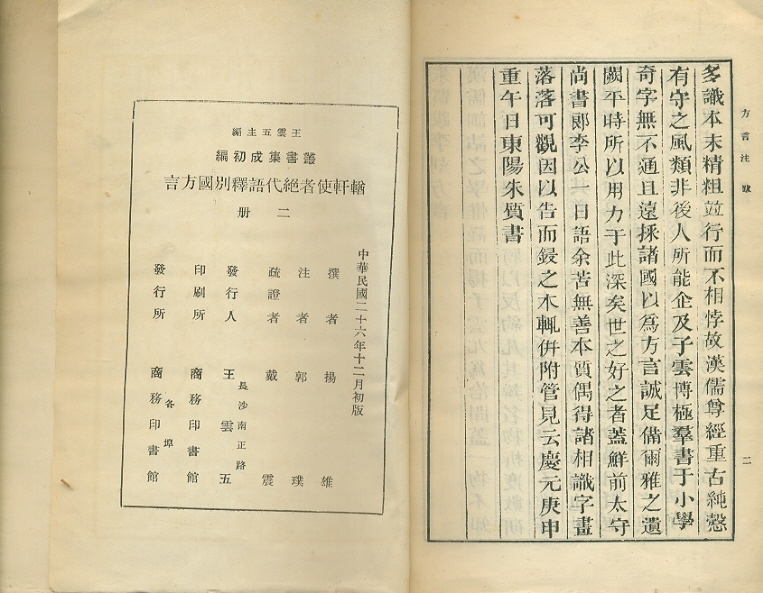 方言注 跋
多識本末精粗竝行而不相悖故漢儒尊經重古純愨
有守之風類非後人所能企及子雲博極羣書于小學
奇字無不通且遠採諸國以為方言誠足備爾雅之遺
闕平時所以用力于此深矣世之好之者蓋鮮前太守
尚書郎李公一日語余苦無善本質偶得諸相識字畫
落落可觀因以告而鋟之木輒併附管見云慶元庚申
重午日東陽朱質書
二
王雲五主編
叢書集成初編
輶軒使者絕代語釋別國方言
二册
中華民國二十六年十二月初版
撰者 揚雄
注者 郭璞
疏證者 戴震
發行人 王雲五
長沙南正路
印刷所 商務印書館
發行所 商務印書館
各埠